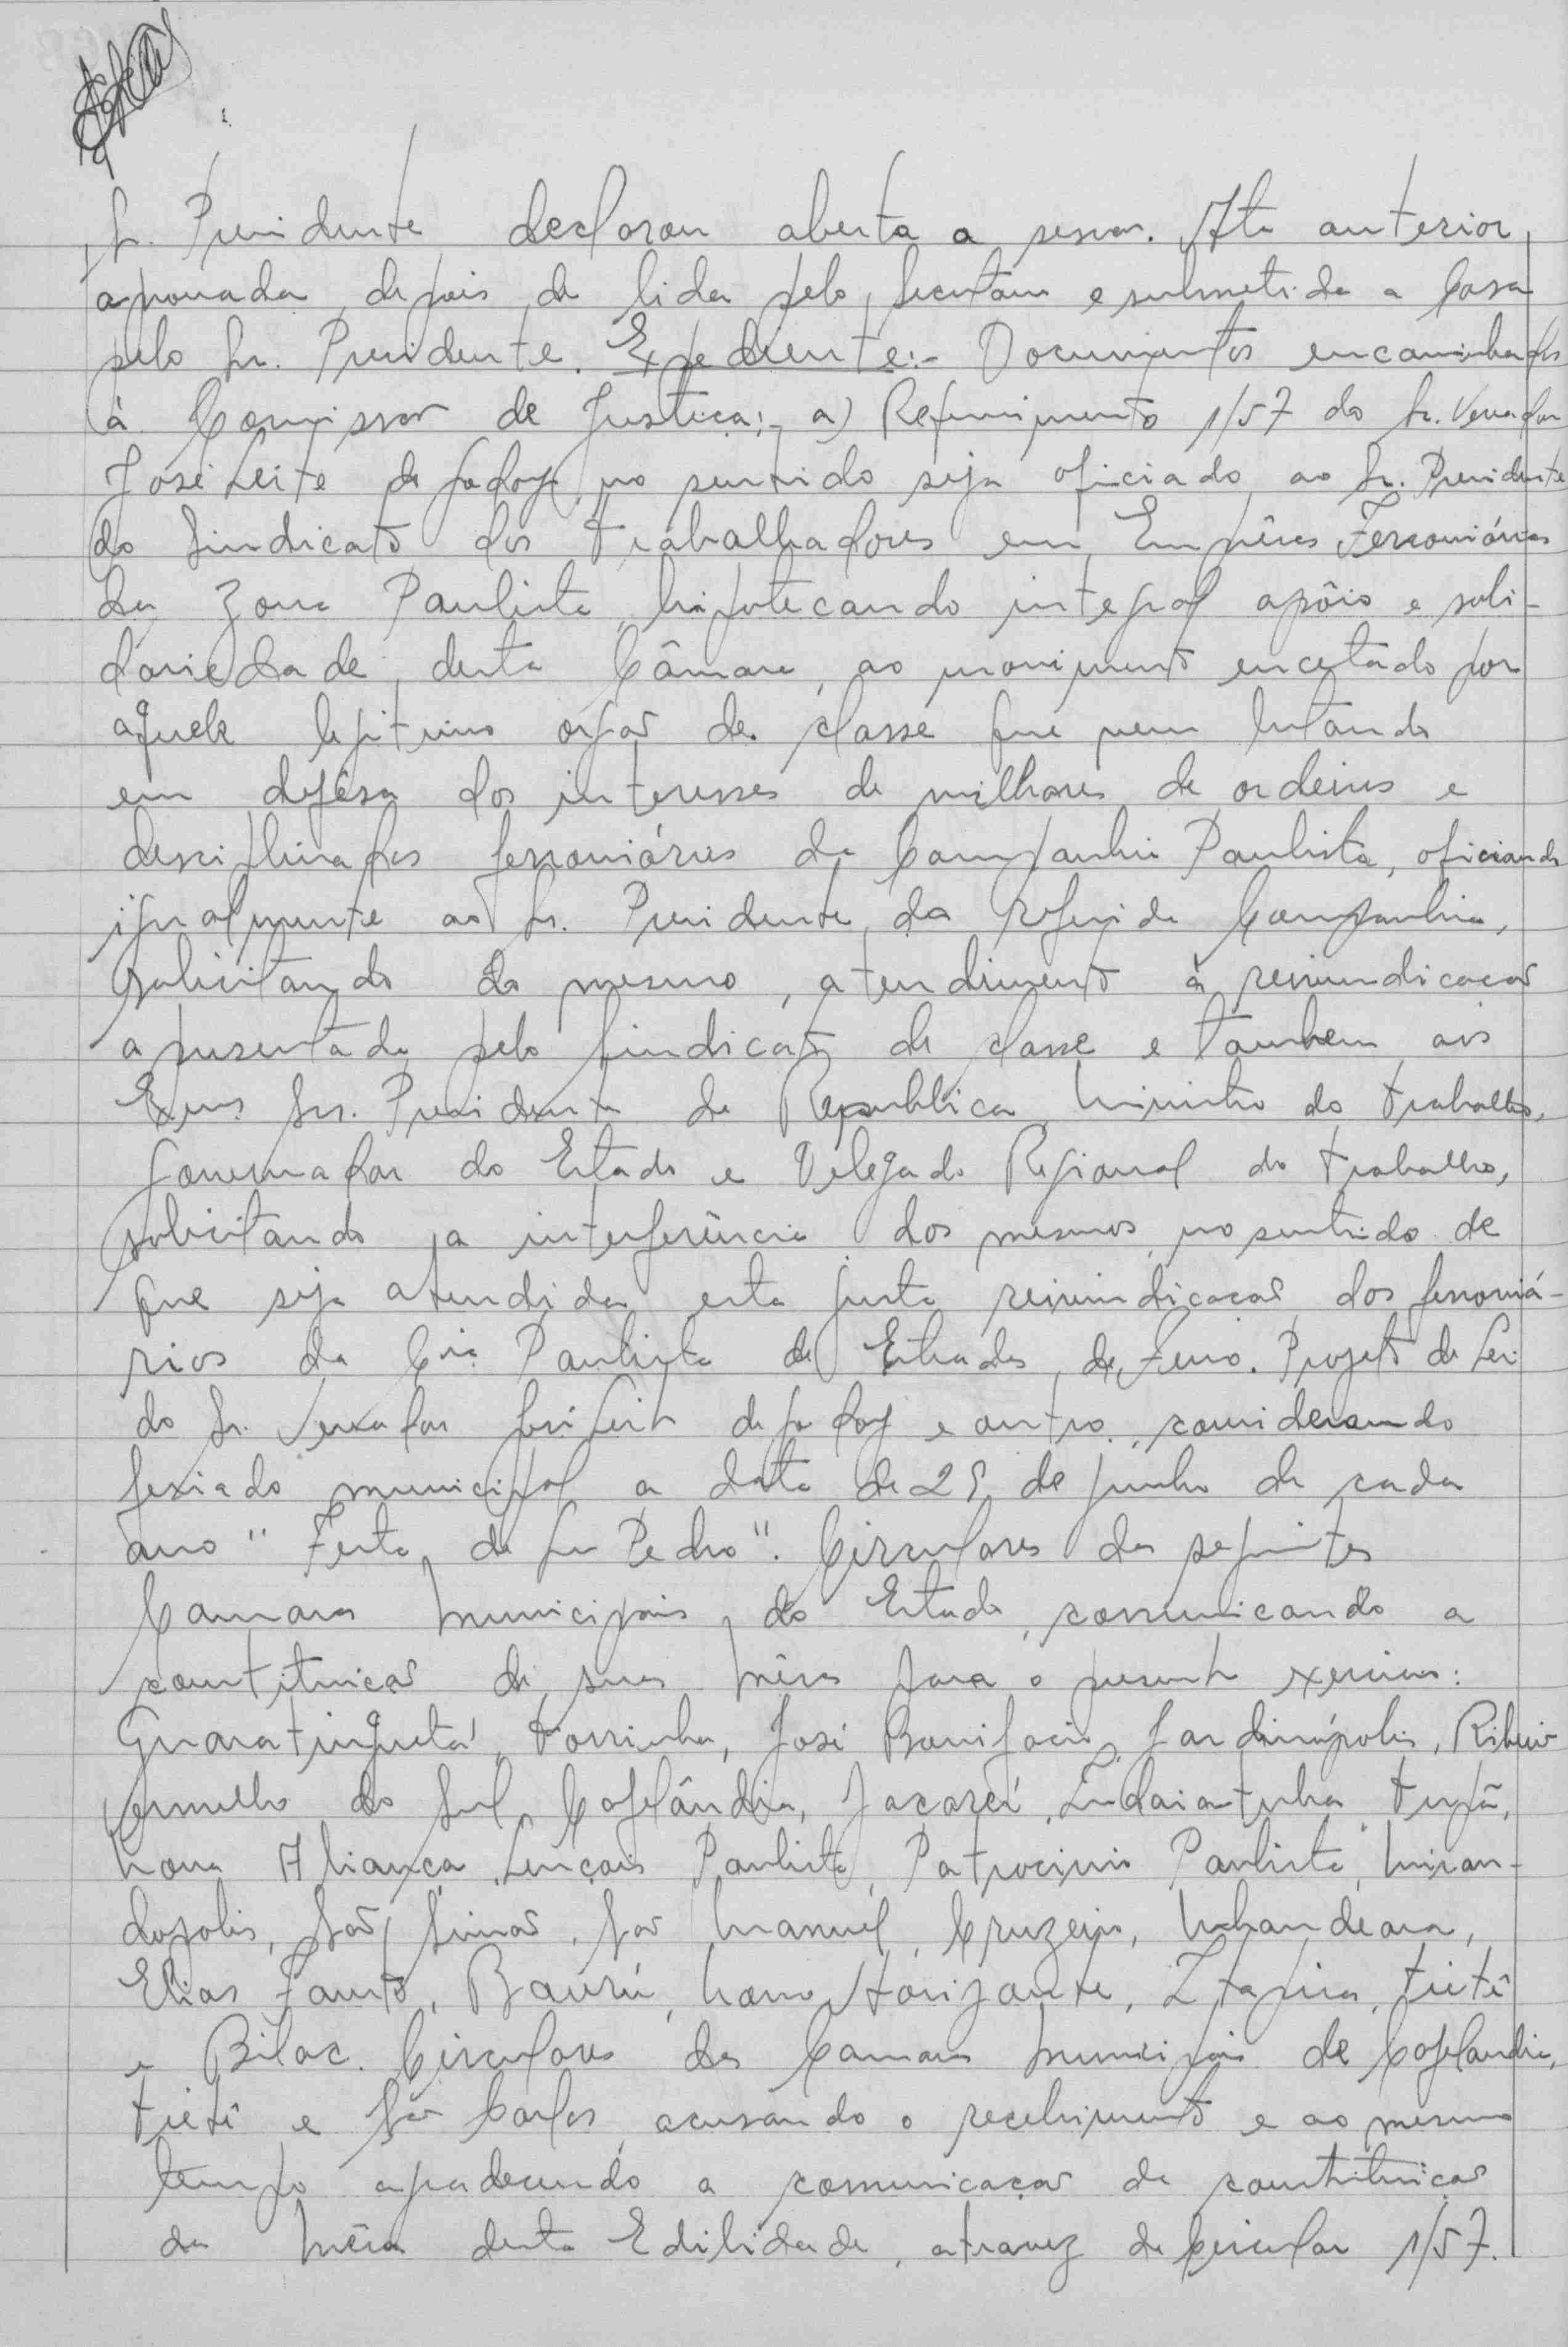 Sr. Presidente declarou aberta a sessão. Ata anterior
aprovada depois de lida pelo Secretario e submetida a Casa
pelo Sr. Presidente. Expediente:- Documentos encaminhados
à Comissão de Justiça:- a) Requerimento 1/57 do Sr. Vereador
José Leite de Godoy, no sentido seja oficiado ao Sr. Presidente
do Sindicato dos Trabalhadores em Emprêsas Ferroviárias
da Zona Paulista, hipotecando integral apôio e soli-
dariedade desta Câmara, ao movimento encetado por
aquele legitimo orgão de classe que vem lutando
em defêsa dos interesses de milhares de ordeiros e
desciplinados ferroviários da Companhia Paulista, oficiando
igualmente ao Sr. Presidente da referida Companhia,
solicitando do mesmo, atendimento à reivindicação
apresentada pelo Sindicato de classe e tambem aos
Exmos Srs. Presidente da Republica, Ministro do Trabalho,
Governador do Estado e Delegado Regional do Trabalho,
solicitando a interferência dos mesmos no sentido de
que seja atendida esta justa reivindicação dos ferroviá-
rios da Cia. Paulista de Estradas de Ferro. Projeto de Lei
do Sr. Vereador José Leite de Godoy e outro, considerando
feriado municipal a data de 29 de junho de cada
ano "Festa de São Pedro". Circulares das seguintes
Camaras Municipais do Estado, comunicando a
constituição de suas Mêsas para o presente exercicio:
Guaratinguetá, Torrinha, José Bonifacio, Jardinópolis, Ribeirão
Vermelho do Sul, Cafelândia, Jacareí, Indaiatuba, Tupã,
Nova Aliança, Lençois Paulista, Patrocinio Paulista, Miran-
dopolis, São Simão, São Manuel, Cruzeiro, Nhandeara,
Elias Fausto, Baurú, Novo Horizonte, Itapira, Tietê
e Bilac. Circulares das Camaras Municipais de Cafelandia,
Tietê e São Carlos, acusando o recebimento e ao mesmo
tempo agradecendo a comunicação da constituição
da Mêsa desta Edilidade, atravez da Circular 1/57.